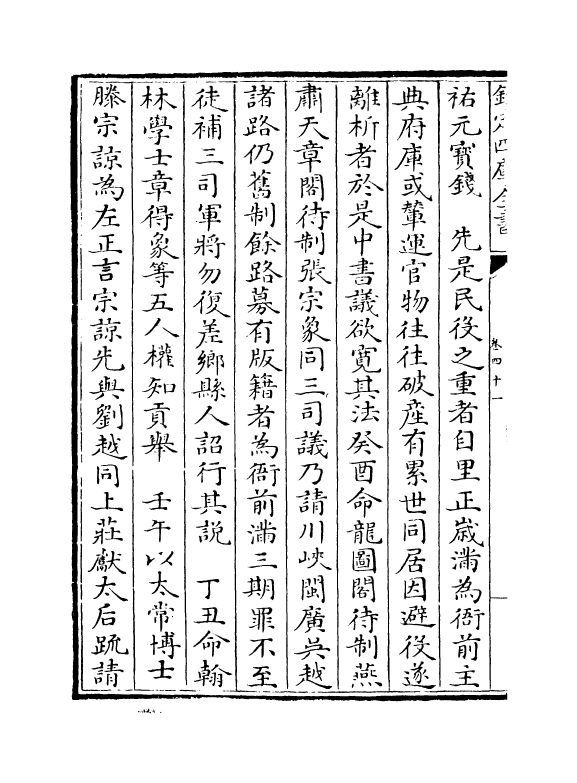 欽定四庫全書
卷四十一
祐元寳錢　先是民役之重者自里正歳滿為衙前主
典府庫或輦運官物往往破産有累世同居因避役遂
離析者於是中書議欲寛其法癸酉命龍圖閣待制燕
肅天章閣待制張宗象同三司議乃請川峽閩廣吳越
諸路仍舊制餘路募有版籍者為衙前滿三期罪不至
徒補三司軍將勿復差鄉縣人詔行其説　丁丑命翰
林學士章得象等五人權知貢舉　壬午以太常博士
滕宗諒為左正言宗諒先與劉越同上莊獻太后疏請